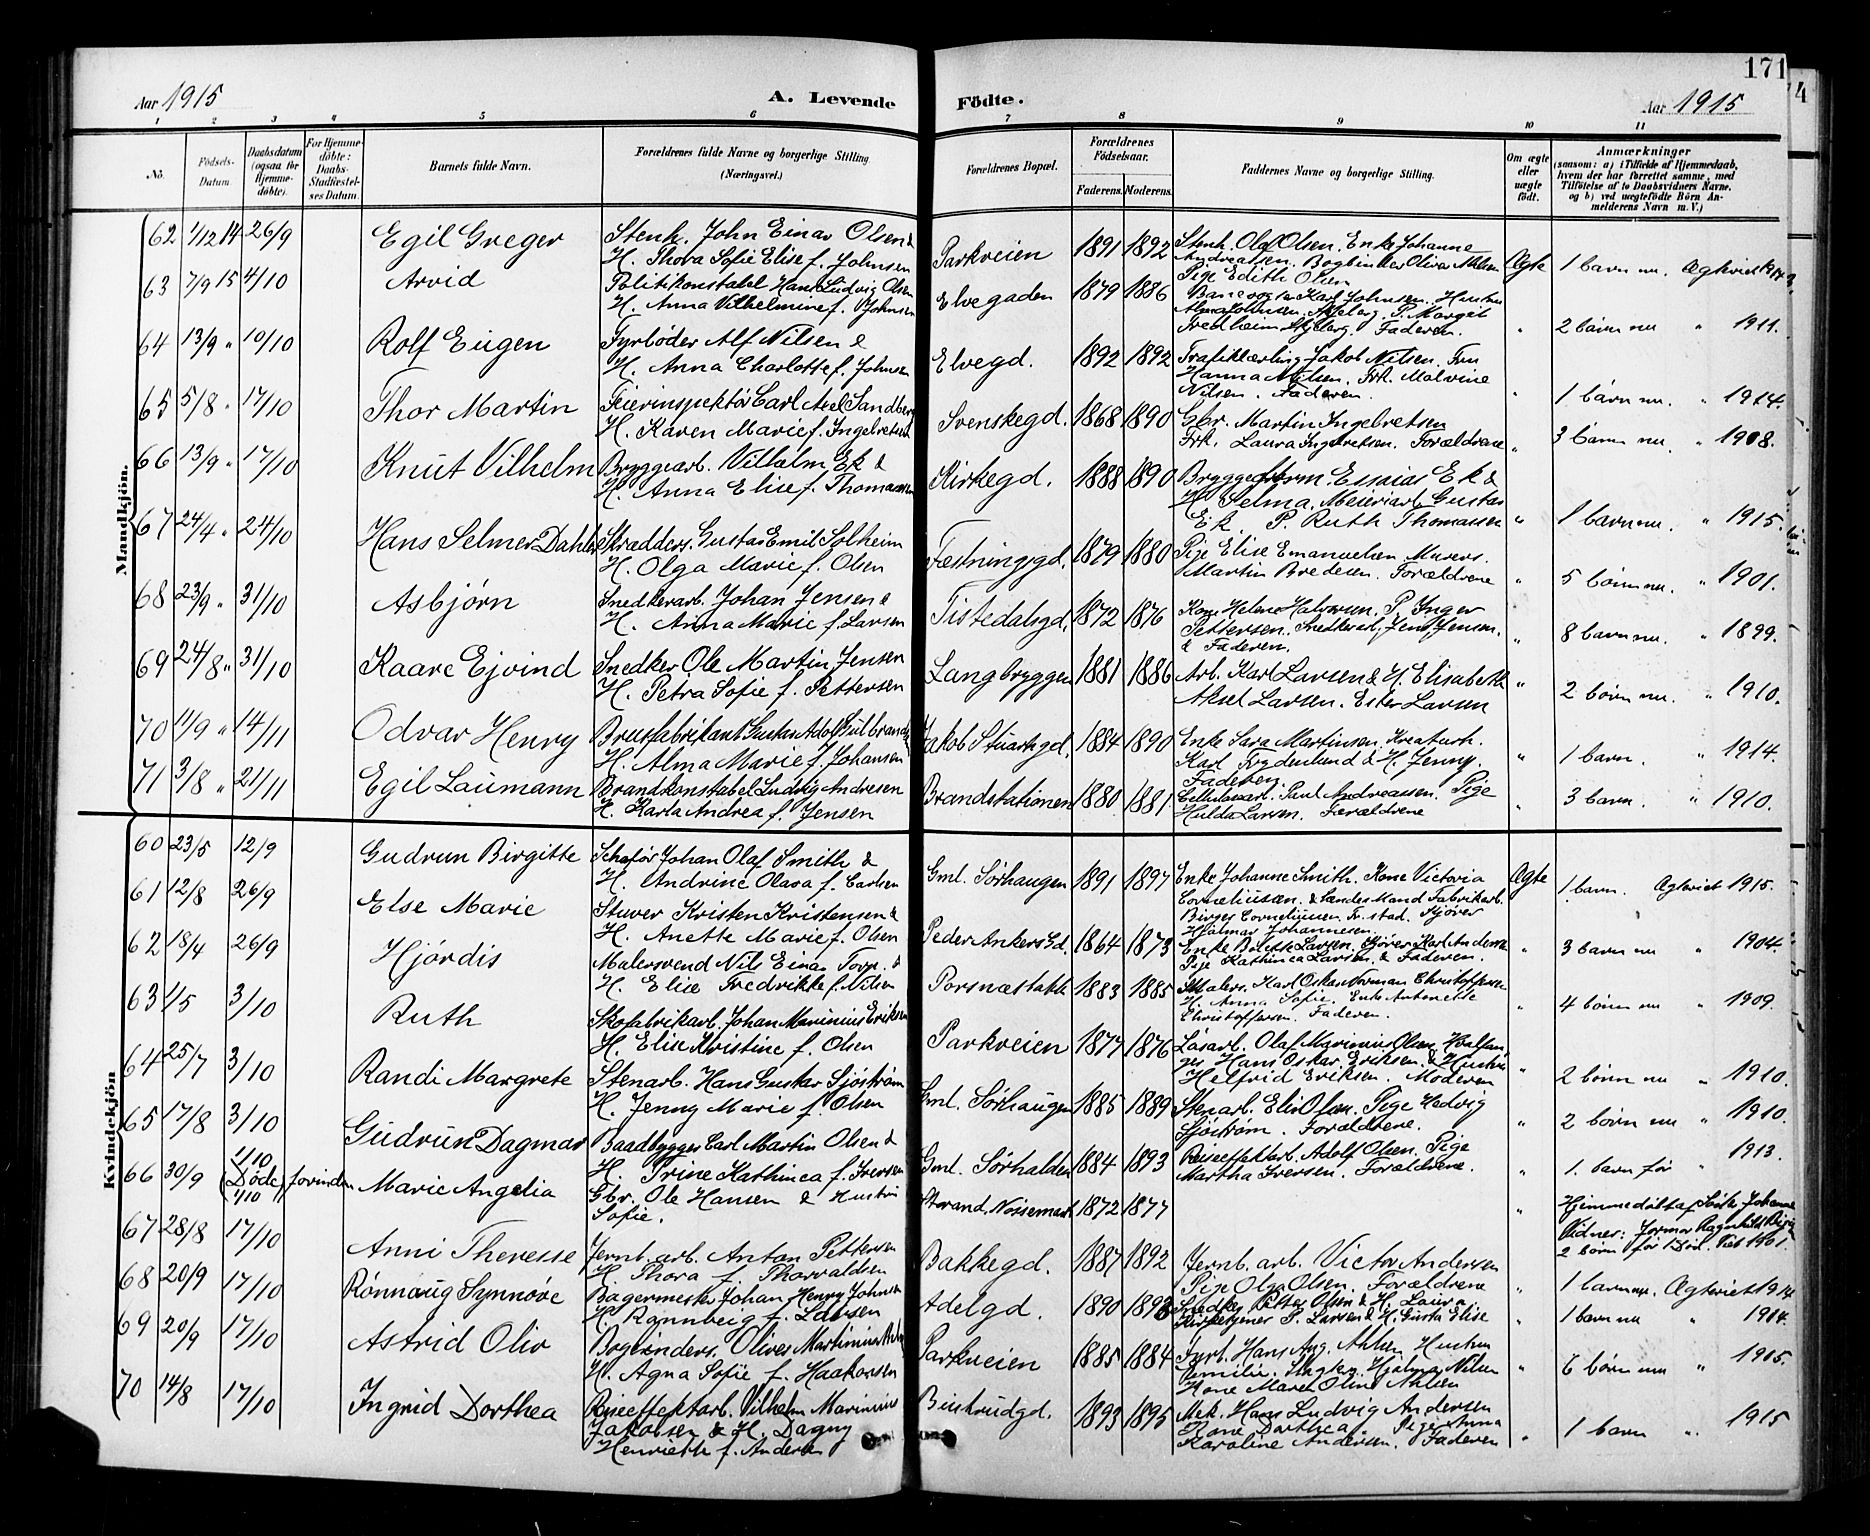 171
Aar 1915
A. Levende Födte.
Aar 1915
1 2 3 4 5 6 7 8 9 10 11
No.
Födsels-Datum.
Daabsdatum (ogsaa for Hjemme-döbte).
For Hjemme-döbte: Daabs-Stadfæstel-ses Datum.
Barnets fulde Navn.
Forældrenes fulde Navne og borgerlige Stilling (Næringsvei.)
Forældrenes Bopæl.
Forældrenes Födselsaar.
Faderens. Moderens.
Faddernes Navne og borgerlige Stilling.
Om ægte eller uægte födt.
Anmærkninger
(saasom: a) i Tilfælde af Hjemmedaab, hvem der har forrettet samme, med Tilföielse af to Daabsvidners Navne, og b) ved uægtefödte Börn An-melderens Navn m. V.)
Mandkjön.
62 1/12 14 26/9 Egil Greger Stenh. John Einar Olsen & H. Thora Sofie Elise f. Johnsen Parkveien 1891 1892 Stenh. Olaf Olsen. Enke Johanne Andreassen. Bogbinder Oliver Nilsen Pige Edith Olsen Ægte 1 barn nu. Ægteviet 1914
63 7/9 15 4/10 Arvid Politikonstabel Hans Ludvig Olsen H. Anna Vilhelmine f. Johnsen Elvegaden 1879 1886 Banevogter Karl Johnsen. Hustru Johnsen. P. Margit Fredheim Skjeberg. Faderen. " 2 börn nu " 1911.
64 13/9 " 10/10 Rolf Eugen Fyrböder Alf Nilsen & H. Anna Charlotte f. Johnsen Elvegd. 1892 1892 Trafiklærling Jakob Nilsen. Fru Hanna Nilsen. Frk. Malvine Nilsen. Faderen. " 1 barn nu. " 1914.
65 5/8 " 17/10 Thor Martin Feierinspektör Carl Axel Sandberg H. Karen Marie f. Ingebretsen Svenskegd. 1868 1890 Gbr. Martin Ingebretsen Frk. Laura Ingebretsen. Forældrene " 3 börn nu " 1908.
66 13/9 " 17/10 Knut Vilhelm Bryggearb. Vilhelm Ek & H. Anna Elise f. Thomassen Kirkegd. 1888 1890 Bryggeriform. Esaias Ek & H. Selma. Meieriarb. Gustav Ek P. Ruth Thomassen " 1 barn nu. " 1915.
67 24/4 " 24/10 Hans Selmer Dahler Skrædders. Gustav Emil Solheim H. Olga Marie f. Olsen Fæstningsgd. 1879 1880 Pige Elise Emanuelsen Murers. Martin Bredesen. Forældrene " 5 börn nu. " 1901.
68 23/9 " 31/10 Asbjörn Snedkerarb. Johan Jensen & H. Anna Marie f. Larsen Tistedalsgd. 1872 1876 Kone Helene Halvorsen. P. Inger Pettersen. Snedkerarb. Jens Jensen. & Faderen. " 8 barn nu. " 1899.
69 24/8 " 31/10 Kaare Ejvind Snedker Ole Martin Jensen H. Petra Sofie f. Pettersen Langbryggen 1881 1886 Arb. Karl Larsen & H. Elisabeth Aksel Larsen. Ester Larsen " 2 börn nu. " 1910.
70 11/9 " 14/11 Odvar Henry Brusfabrikant Gustav Adolf Gulbrandsen H. Alma Marie f. Johansen Jakob Stuartsgd. 1884 1890 Enke Sara Martinsen. Kreaturh. Karl Frydenlund & H. Jenny. Faderen " 1 barn. " 1914.
71 3/8 " 21/11 Egil Laumann Brandkonstabel Ludvig Andresen H. Karla Andrea f. Jensen Brandstationen 1880 1881 Cellulosearb. Paul Andreassen. Pige Hulda Larsen. Forældrene " 3 barn. " 1910.
Kvindekjön
60 23/5 12/9 Gudrun Birgitte Schaför Johan Olaf Smith & H. Andrine Olava f. Carlsen Gml. Sörhaugen 1891 1897 Enke Johanne Smith. Kone Victoria Corneliusen. & Landes Mand Fabrikarb. Birger Corneliusen Fr.stad. Kjörer Hjalmar Johannesen Ægte 1 barn. Ægteviet 1915.
61 12/8 26/9 Else Marie Stuver Kristen Kristensen & H. Anette Marie f. Olsen Peder Ankers Gd. 1864 1873 Enke Bolette Larsen. Kjörer Karl Andersen Pige Kathinca Larsen. & Faderen. " 3 barn nu " 1904.
62 18/4 26/9 Hjördis Malersvend Nils Einar Torp. & H. Elise Fredrikke f. Nilsen Porsnæs 1883 1885 Malers. Karl Oskar Norman Christoffersen H. Anna Sofie. Enke Antonette Christoffersen. Faderen. " 4 börn nu " 1909.
63 1/5 3/10 Ruth Skofabrikarb. Johan Marinius Eriksen H. Elise Kristine f. Olsen Parkveien 1877 1876 Lösarb. Olaf Marinius Olsen Hans Oskar Eriksen & Hustru Helfrid Eriksen. Moderen " 2 börn nu " 1910.
64 25/7 3/10 Randi Margrete Stenarb. Hans Gustav Sjöström H. Jenny Marie f. Olsen Gml. Sörhaugen 1885 1889 Stenarb. Eli Olsen. Pige Hedvig Sjöström. Forældrene. " 2 börn nu " 1910.
65 17/8 3/10 Gudrun Dagmar Baadbygger Carl Martin Olsen & H. Trine Kathinca f. Iversen Gml. Sörhalden 1884 1893 Reiseeffektarb. Adolf Olsen. Pige Martha Iversen. Forældrene. " 1. barn för " 1913.
66 30/9 1/10 (Död 1/10) forinden Marie Angelia Gbr. Ole Hansen & Hustru Sofie. Strand, Nössemark 1872 1877 " Hjemmedöbt af Johanne Vidner: Jormor Ragnhild 2 börn för 1 Död. Viet 1901
67 28/8 17/10 Anni Theresse Jernb. arb. Anton Pettersen H. Thora f. Thorvaldsen Bakkegd. 1887 1892 Jernb. arb. Victor Andersen Pige Olga Olsen. Forældrene " 1 barn nu. Ægteviet 1914
68 20/9 17/10 Rönnaug Synnöve Bagermester Johan Henry Johnsen H. Rannveig f. Larsen Adelgd. 1890 1893 Snedker Petter Olsen & H. Laura Kirketjener P. Larsen & H. Gusta Elise " 1 barn nu " 1914.
69 20/9 17/10 Astrid Oliv Bogbinders. Oliver Martinius H. Agna Sofie f. Haakonsen Parkveien 1885 1884 Fyrb. Hans Aug. Ahlsen Hustru Emilie. Slagter Hjalmar Nilsen Kone Maren Oline Ahlsen " 6 börn nu " 1905.
70 14/8 17/10 Ingrid Dorthea Reiseeffektarb. Vilhelm Marinius Jakobsen & H. Dagny Henriette f. Andersen Buskrudgd. 1893 1895 Mek. Hans Ludvig Andersen Kone Dorthea Pige Anna Karoline Andersen. Faderen " 1 barn " 1915